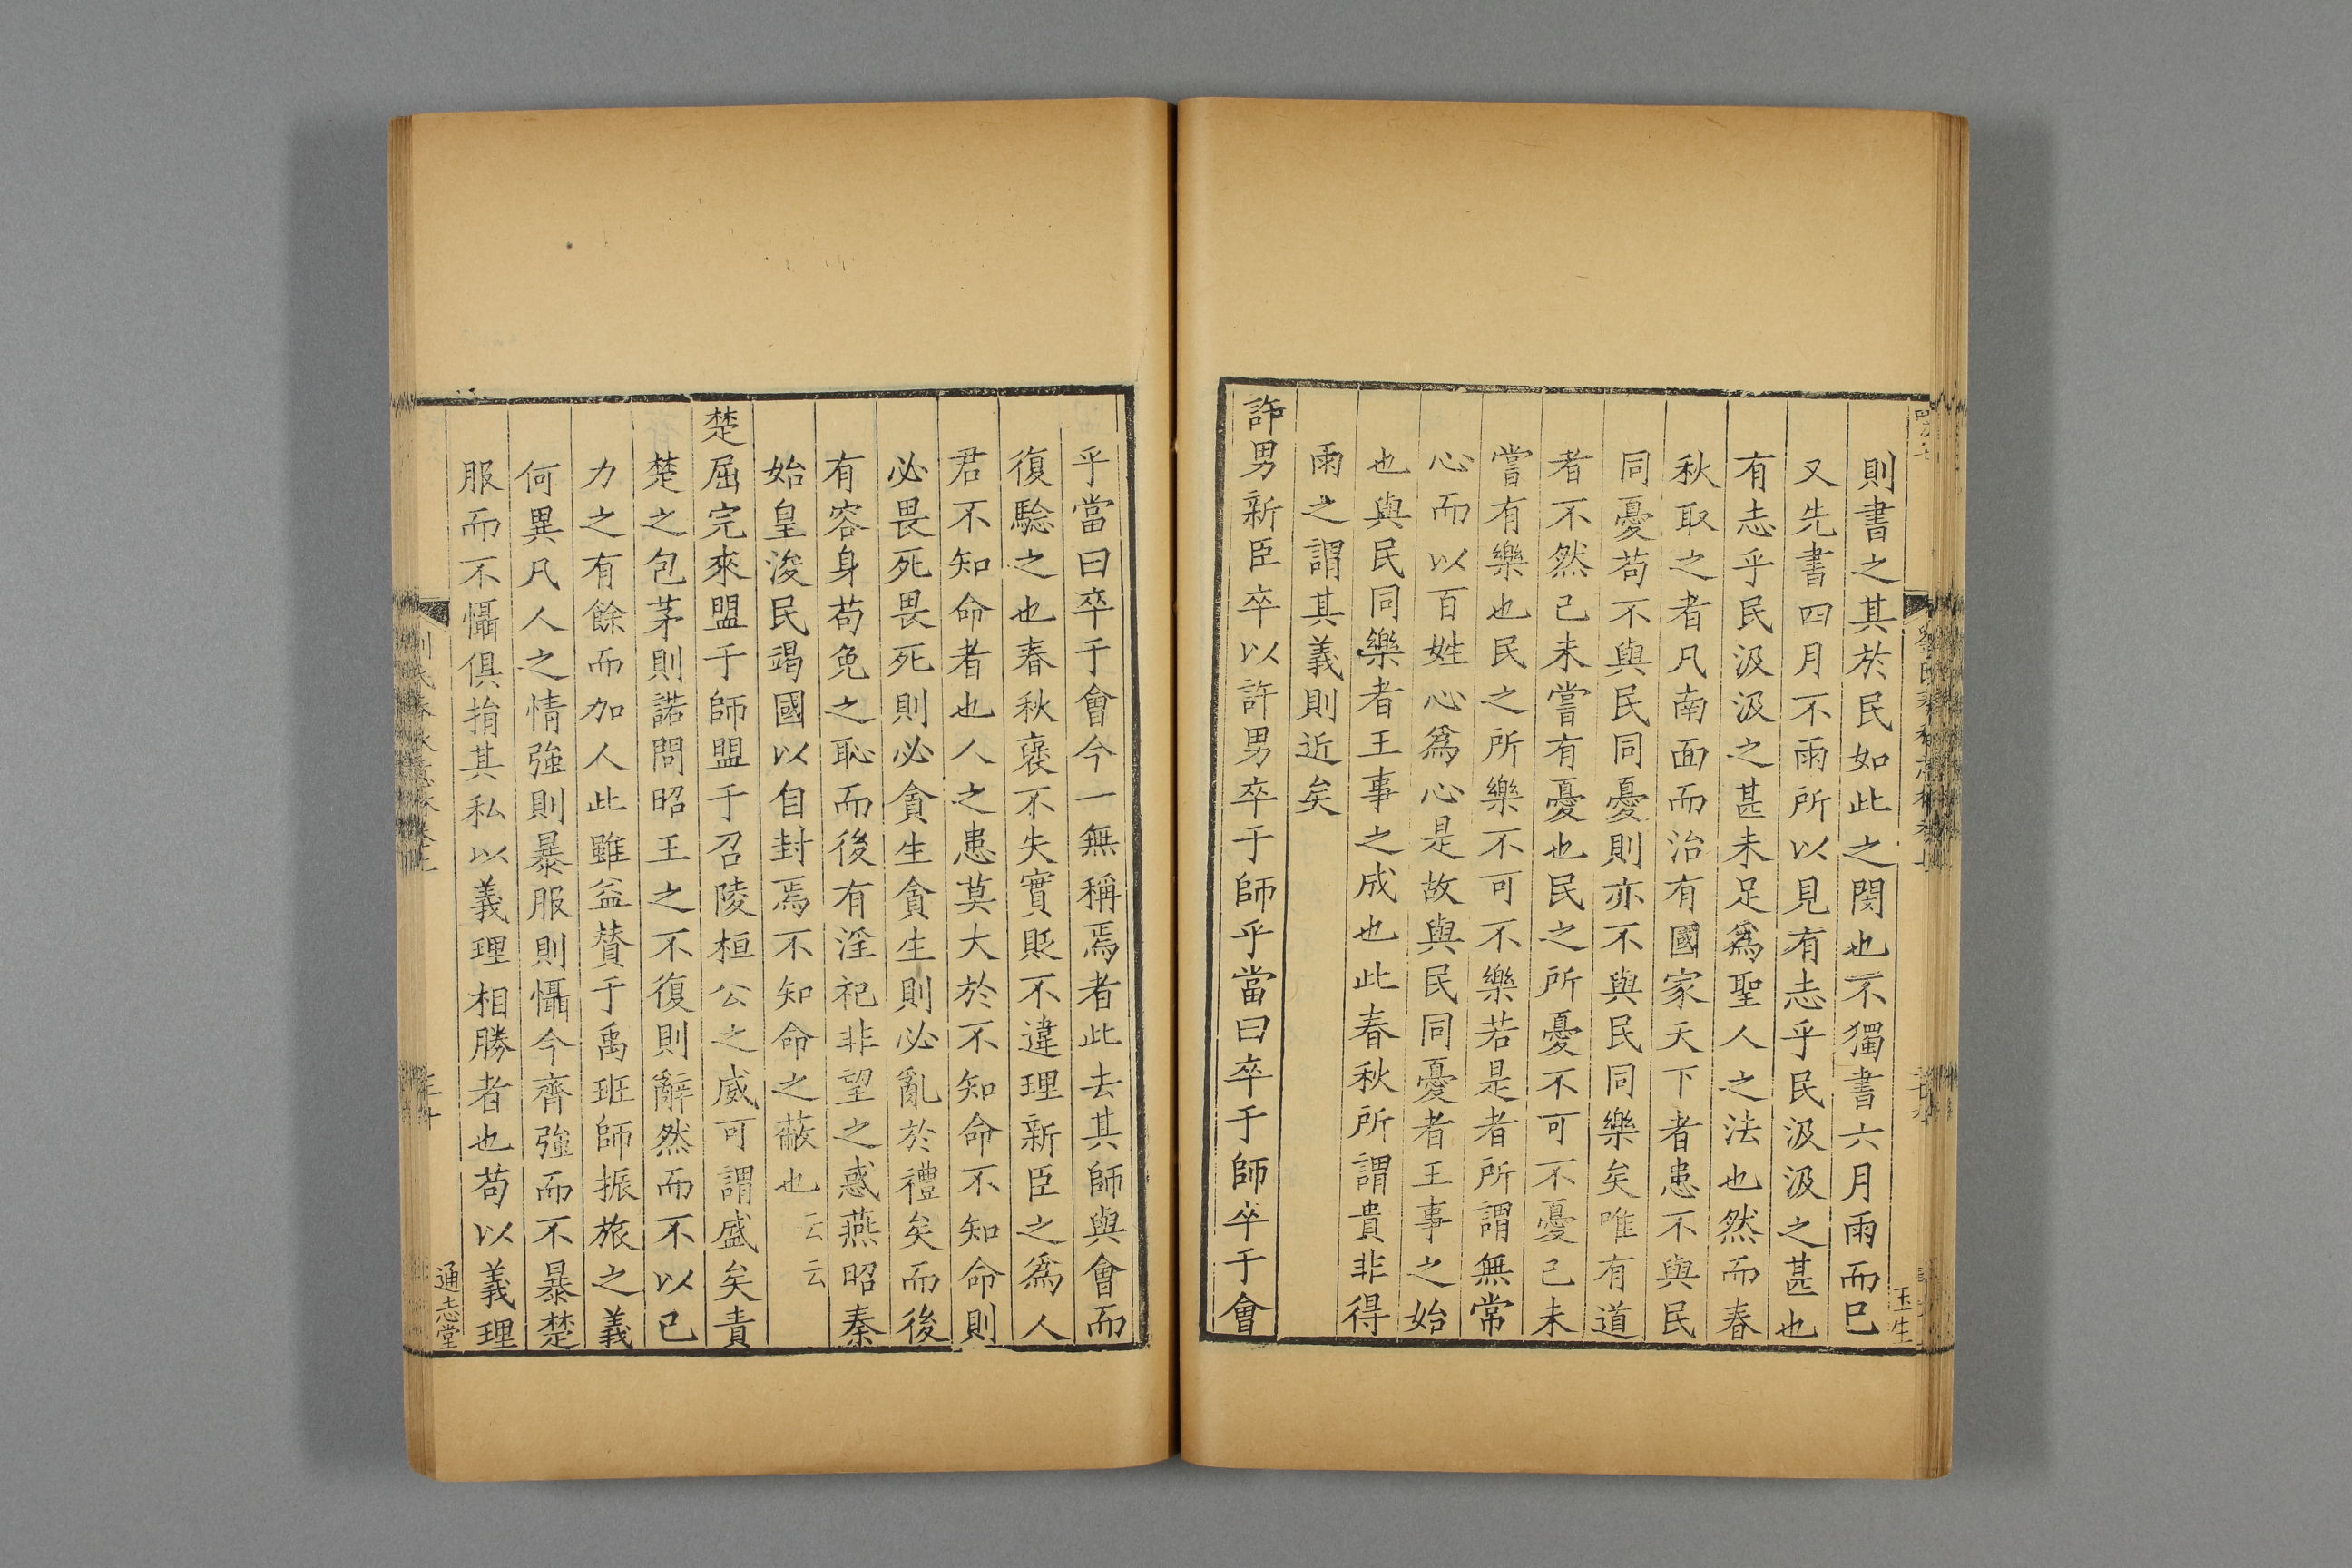 則書之其於民如此之閔也不獨書六月雨而巳
又先書四月不雨所以見有志乎民汲汲之甚也
有志乎民汲汲之甚未足爲聖人之法也然而春
秋取之者凡南面而治有國家天下者患不與民
同憂苟不與民同憂則亦不與民同樂矣唯有道
者不然己未嘗有憂也民之所憂不可不憂己未
嘗有樂也民之所樂不可不樂若是者所謂無常
心而以百姓心爲心是故與民同憂者王事之始
也與民同樂者王事之成也此春秋所謂貴非得
雨之謂其義則近矣
許男新臣卒以許男卒于師乎當曰卒于師卒于會
乎當曰卒于會今一無稱焉者此去其師與會而
復驗之也春秋襃不失實貶不違理新臣之爲人
君不知命者也人之患莫大於不知命不知命則
必畏死畏死則必貪生貪生則必亂於禮矣而後
有容身苟免之恥而後有淫祀非望之惑燕昭秦
始皇浚民竭國以自封焉不知命之蔽也云云
楚屈完來盟于師盟于召陵桓公之威可謂盛矣責
楚之包茅則諾問昭王之不復則辭然而不以已
力之有餘而加人此雖益贊于禹班師振旅之義
何異凡人之情強則暴服則懾今齊強而不暴楚
服而不懾俱捐其私以義理相勝者也苟以義理
通志堂